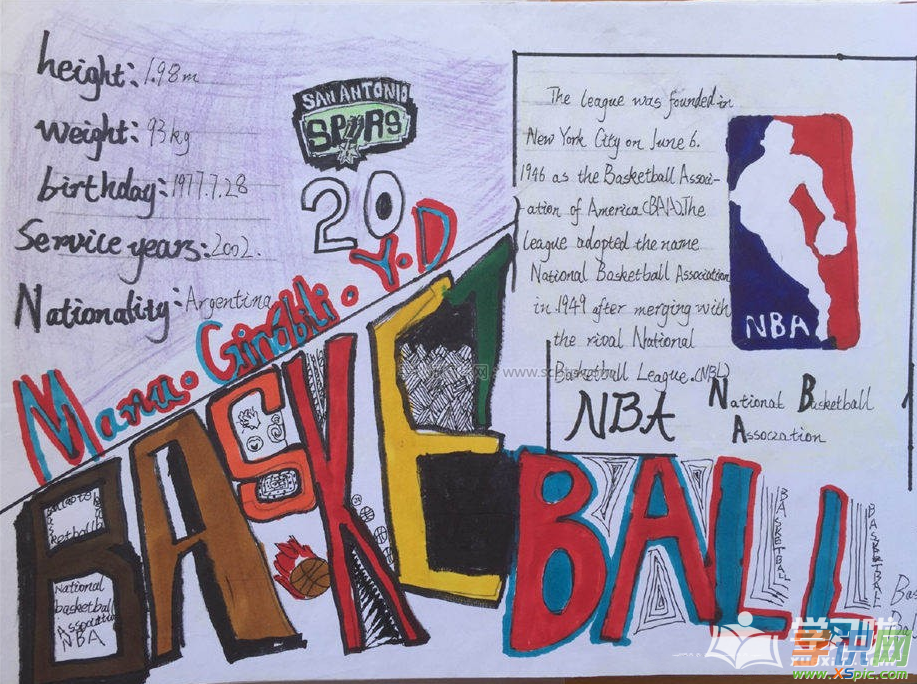 height: 1.98m
weight: 93kg
birthday: 1977.7.28
Service years: 2002.
Nationality: Argentina
SAN ANTONIO
SPURS
20
Manu. Ginobili. Y.D
The league was founded in
New York City on June 6.
1946 as the Basketball Associ-
ation of America(BAA).The
league adopted the name
National Basketball Association
in 1949 after merging with
the rival National
Basketball League.(NBL)
NBA
NBA
National Basketball
Association
BASKETBALL
National
basketball
Association
NBA
BASKETBALL
BASKETBALL
学习啦
学识网
www.XSpic.com